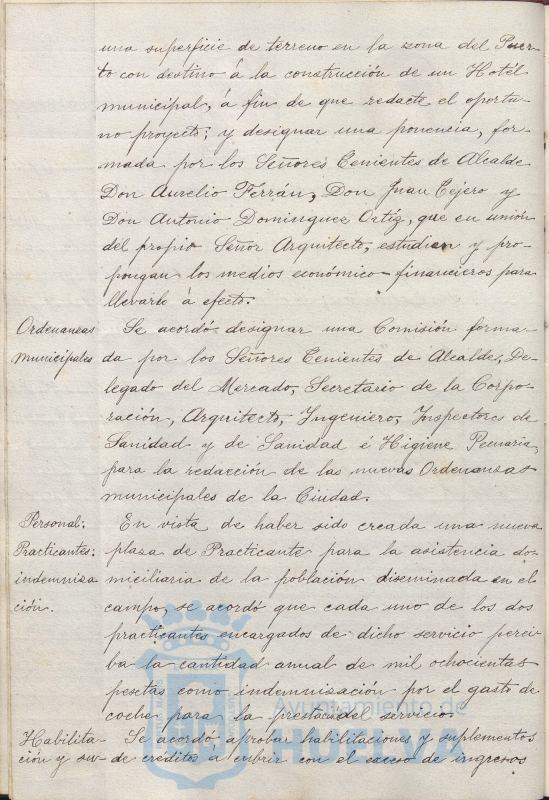 una superficie de terreno en la zona del Puer-
to con destino á la construcción de un Hotel
municipal, á fin de que redacte el oportu-
no proyecto; y designar una ponencia, for-
mada por los Señores Tenientes de Alcalde
Don Aurelio Ferrán, Don Juan Tejero y
Don Antonio Dominguez Ortiz, que en unión
del propio Señor Arquitecto, estudien y pro-
pongan los medios económico-financieros para
llevarlo á efecto.
Ordenanzas
municipales
Se acordó designar una Comisión forma-
da por los Señores Tenientes de Alcalde, De-
legado del Mercado, Secretario de la Corpo-
ración, Arquitecto, Ingeniero, Inspectores de
Sanidad y de Sanidad é Higiene Pecuaria,
para la redacción de las nuevas Ordenanzas
municipales de la Ciudad.
Personal:
Practicantes:
indemniza
ción.
En vista de haber sido creada una nueva
plaza de Practicante para la asistencia do-
miciliaria de la población diseminada en el
campo, se acordó que cada uno de los dos
practicantes encargados de dicho servicio perci-
ba la cantidad anual de mil ochocientas
pesetas como indemnización por el gasto de
coche para la prestac. del servicio.
Habilita-
ción y su-
Se acordó, aprobar habilitaciones y suplementos
de créditos a cubrir con el exceso de ingresos
Ayuntamiento de
HUELVA